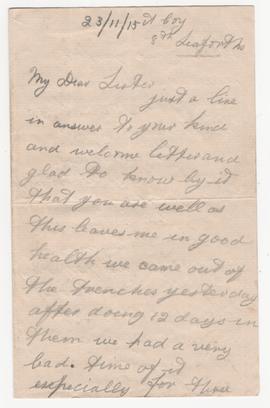 23/11/15 A Coy
8th Seaforths
My Dear Sister
just a line
in answer to your kind
and welcome letter and
glad to know by it
that you are well as
this leaves me in good
health we came out of
the trenches yesterday
after doing 12 days in
them we had a very
bad time of it
especially for three